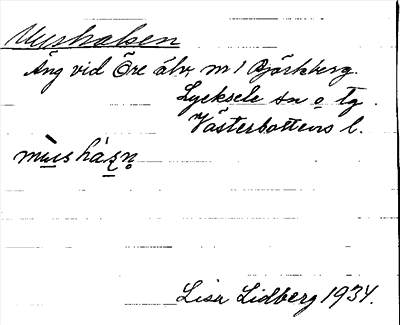 Myshalsen
Äng vid Öre älv nr 1 Björkberg.
Lycksele sn o tg.
Västerbottens l.
Lisa Lidberg 1934.